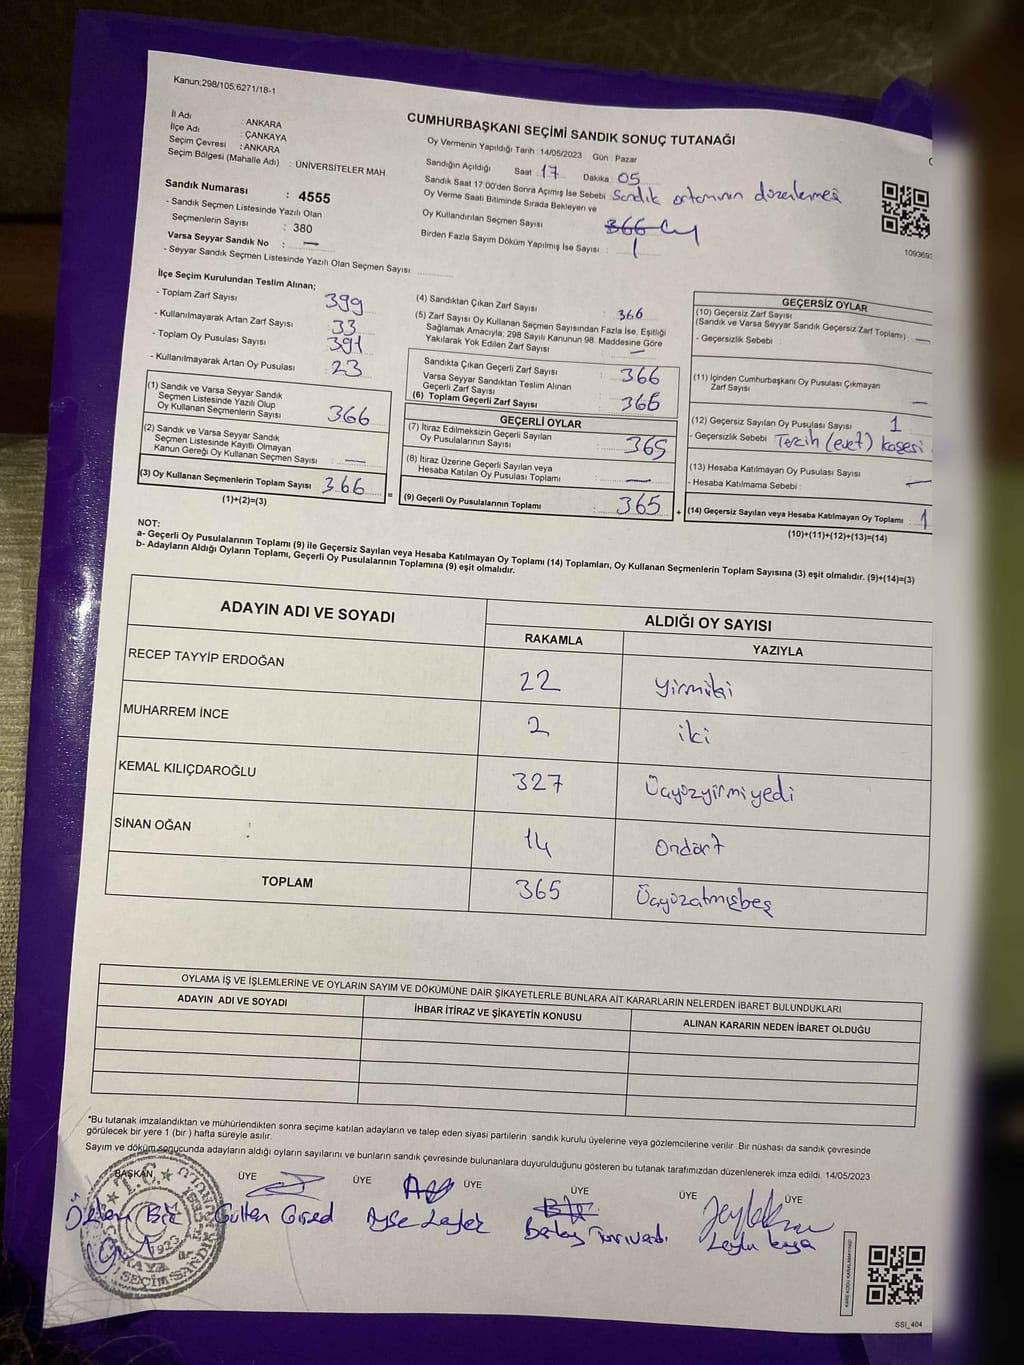 Kanun;298/105,6271/18-1
CUMHURBAŞKANI SEÇİMİ SANDIK SONUÇ TUTANAĞI
İl Adı : ANKARA
İlçe Adı : ÇANKAYA
Seçim Çevresi : ANKARA
Seçim Bölgesi (Mahalle Adı) : ÜNİVERSİTELER MAH.
Sandık Numarası : 4555
- Sandık Seçmen Listesinde Yazılı Olan
Seçmenlerin Sayısı : 380
Varsa Seyyar Sandık No : —
- Seyyar Sandık Seçmen Listesinde Yazılı Olan Seçmen Sayısı
Oy Vermenin Yapıldığı Tarih : 14/05/2023 Gün : Pazar
Sandığın Açıldığı Saat 17 Dakika 05
Sandık Saat 17:00'den Sonra Açımış İse Sebebi Sandık ortamının düzenlenmesi
Oy Verme Saati Bitiminde Sırada Bekleyen ve
Oy Kullandırılan Seçmen Sayısı
Birden Fazla Sayım Döküm Yapılmış İse Sayısı : 1
İlçe Seçim Kurulundan Teslim Alınan;
- Toplam Zarf Sayısı 399
- Kullanılmayarak Artan Zarf Sayısı : 33
- Toplam Oy Pusulası Sayısı : 391
- Kullanılmayarak Artan Oy Pusulası : 23
(1) Sandık ve Varsa Seyyar Sandık
Seçmen Listesinde Yazılı Olup
Oy Kullanan Seçmenlerin Sayısı : 366
(2) Sandık ve Varsa Seyyar Sandık
Seçmen Listesinde Kayıtlı Olmayan
Kanun Gereği Oy Kullanan Seçmen Sayısı : —
(3) Oy Kullanan Seçmenlerin Toplam Sayısı : 366
(1)+(2)=(3)
=
(4) Sandıktan Çıkan Zarf Sayısı : 366
(5) Zarf Sayısı Oy Kullanan Seçmen Sayısından Fazla İse, Eşitliği
Sağlamak Amacıyla; 298 Sayılı Kanunun 98. Maddesine Göre
Yakılarak Yok Edilen Zarf Sayısı : —
Sandıkta Çıkan Geçerli Zarf Sayısı : 366
Varsa Seyyar Sandıktan Teslim Alınan
Geçerli Zarf Sayısı
(6) Toplam Geçerli Zarf Sayısı : 366
GEÇERLİ OYLAR
(7) İtiraz Edilmeksizin Geçerli Sayılan
Oy Pusulalarının Sayısı : 365
(8) İtiraz Üzerine Geçerli Sayılan veya
Hesaba Katılan Oy Pusulası Toplamı : —
(9) Geçerli Oy Pusulalarının Toplamı : 365
+
1093693
GEÇERSİZ OYLAR
(10) Geçersiz Zarf Sayısı
(Sandık ve Varsa Seyyar Sandık Geçersiz Zarf Toplamı) : —
- Geçersizlik Sebebi :
(11) İçinden Cumhurbaşkanı Oy Pusulası Çıkmayan
Zarf Sayısı : —
(12) Geçersiz Sayılan Oy Pusulası Sayısı : 1
- Geçersizlik Sebebi : Tercih (evet) kaşesi
(13) Hesaba Katılmayan Oy Pusulası Sayısı : —
- Hesaba Katılmama Sebebi :
(14) Geçersiz Sayılan veya Hesaba Katılmayan Oy Toplamı : 1
(10)+(11)+(12)+(13)=(14)
NOT:
a- Geçerli Oy Pusulalarının Toplamı (9) ile Geçersiz Sayılan veya Hesaba Katılmayan Oy Toplamı (14) Toplamları, Oy Kullanan Seçmenlerin Toplam Sayısına (3) eşit olmalıdır. (9)+(14)=(3)
b- Adayların Aldığı Oyların Toplamı, Geçerli Oy Pusulalarının Toplamına (9) eşit olmalıdır.
ADAYIN ADI VE SOYADI ALDIĞI OY SAYISI
RAKAMLA YAZIYLA
RECEP TAYYİP ERDOĞAN 22 yirmiiki
MUHARREM İNCE 2 iki
KEMAL KILIÇDAROĞLU 327 Üçyüzyirmiyedi
SİNAN OĞAN 14 Ondört
TOPLAM 365 Üçyüzatmışbeş
OYLAMA İŞ VE İŞLEMLERİNE VE OYLARIN SAYIM VE DÖKÜMÜNE DAİR ŞİKAYETLERLE BUNLARA AİT KARARLARIN NELERDEN İBARET BULUNDUKLARI
ADAYIN ADI VE SOYADI İHBAR İTİRAZ VE ŞİKAYETİN KONUSU ALINAN KARARIN NEDEN İBARET OLDUĞU
*Bu tutanak imzalandıktan ve mühürlendikten sonra seçime katılan adayların ve talep eden siyasi partilerin sandık kurulu üyelerine veya gözlemcilerine verilir. Bir nüshası da sandık çevresinde
görülecek bir yere 1 (bir) hafta süreyle asılır.
Sayım ve döküm sonucunda adayların aldığı oyların sayılarını ve bunların sandık çevresinde bulunanlara duyurulduğunu gösteren bu tutanak tarafımızdan düzenlenerek imza edildi. 14/05/2023
BAŞKAN ÜYE ÜYE ÜYE ÜYE ÜYE ÜYE
T.C.
1923
Gülten
Ayşe
Leyla Kaya
SSI_404